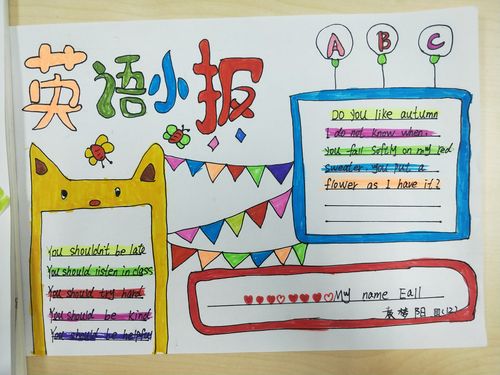 英语小报
A B C
Do you like autumn
I do not know when
You fall softly on my red
sweater You put a
flower as I have it?
You shouldn't be late
You should listen in class
You should try hard
You should be kind
You should be helpful
My name Eall
袁梦阳 四(2)